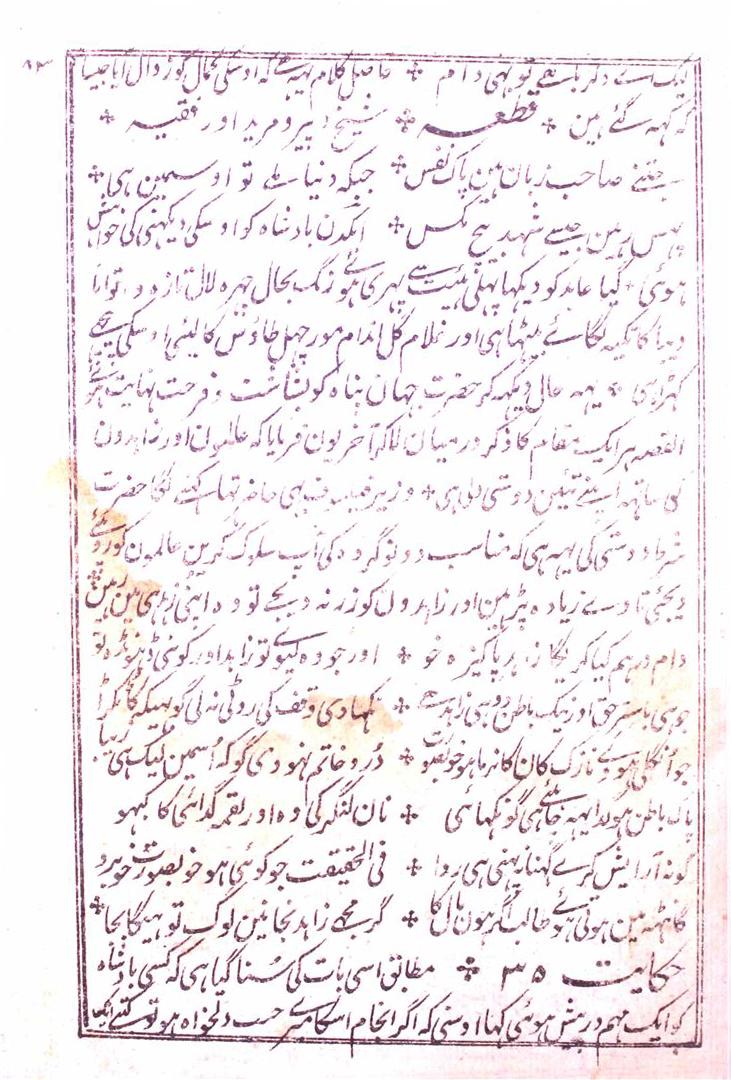 ۸۳
ایک سے دگر باہے تو یہی دام ❊ حاصل کلام یہہ ہے کہ اوسکی کمال کو زوال آیا جیسا
کہ کہہ گئے ہین ❊ قطعہ ❊ شیخ و پیر و مرید اور فقیہ ❊
جتنے صاحب زبان ہین پاک نفس ❊ جبکہ دنیا ملے تو اوسمین ہی ❊
پھس رہین جیسے شہد بیچ مگس ❊ ایکدن بادشاہ کو اوسکی دیکہنی کی خواہش
ہوئی ❊ گیا عابد کو دیکہا پہلی ہیئت سے پہری ہوئے رنگ بحال چہرہ لال تازہ و توانا
دیبا کا تکیہ لگائے بیٹہا ہی اور غلام گل اندام مورچہل طاؤس کا لیئی اوسکی پیچھے
کہڑا ہی ❊ یہہ حال دیکہہ کر حضرت جہان پناہ کو بشاشت و فرحت نہایت ہوئے
القصہ ہر ایک مقام کا ذکر درمیان لاکر آخر یون فرمایا کہ عالمون اور زاہدون
کی ساتہہ اپنے تئین دوستی دلی ہی ❊ وزیر فیلسوف بہی حاضر تہا کہنے لگا حضرت
شرط دوستی کی یہہ ہی کہ مناسب دونو گروہ کی آپ سلوک کرین عالمون کو روپئے
دیجئی تا وے زیادہ پڑہین اور زاہدون کو زر نہ دیجے تو وہ اپنی زہد ہی مین رہین ❊
دام درہم کیا کریگا زاہد پاکیزہ خو ❊ اور جو وہ لیو تو زاہد اور کوئی ڈہونڈہ تو
جوہی باسر حق اور نیک باطن وہی زاہد ہے ❊ کہادی وقف کی روٹی نہ لی گو بہیکہہ کا ٹکڑا
جو انگلی ہووے نازک کان کا نرما ہو خوبصورت ❊ در و خاتم نہووی گو کہ اسمین لیک ہی زیبا
پاک باطن ہو گدا یہہ چاہئے ہی گو نکہائی ❊ نان لنگر کی وہ اور لقمہ گدائی کا کبہو
گو نہ آرایش کرے گہنا نہ پہنی ہی روا ❊ فی الحقیقت جو کوئی ہو خوبصورت خوبرو
گانٹہہ مین ہوتی ہوئے طالب اگر ہون مال کا ❊ گر مجھے زاہد نجانین لوگ تو ہیگا بجا ❊
حکایت ۳۵ ❊ مطابق اسی بات کی سنا گیا ہی کہ کسی بادشاہ
کو ایک مہم درپیش ہوئی کہا اوسنی کہ اگر انجام اسکا میرے حسب دلخواہ ہو تو کتنے ایک